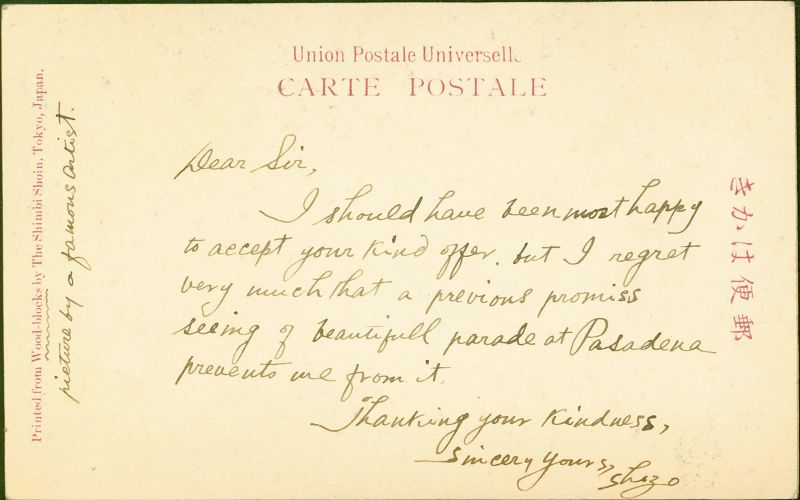 Union Postale Universelle
CARTE POSTALE
Dear Sir,
I should have been most happy
to accept your kind offer, but I regret
very much that a previous promiss
seeing of beautifull parade at Pasadena
prevents me from it.
Thanking your kindness,
sincery yours,
Shizo
きかは便郵
Printed from Wood-blocks by The Shimbi Shoin, Tokyo, Japan.
picture by a famous artist.